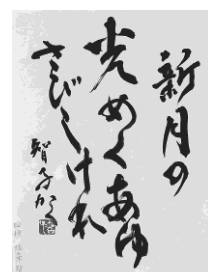 新月の
光めくあゆ
さびしけれ
智子句